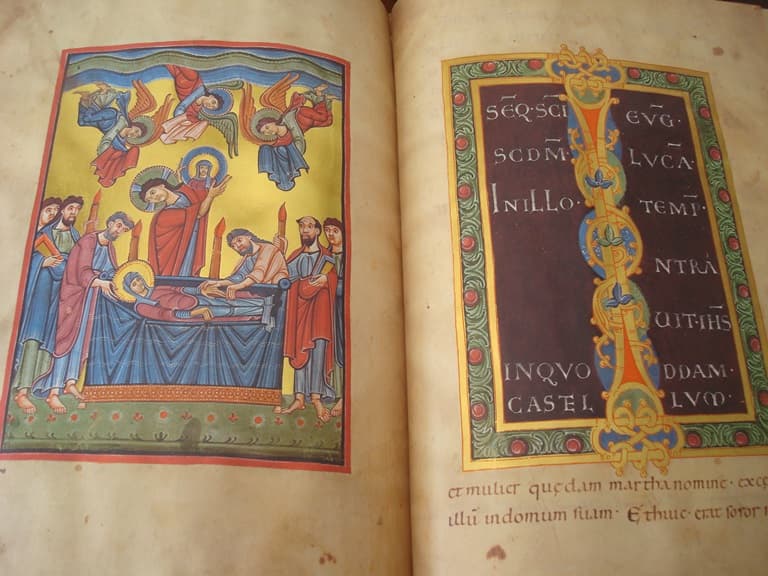 SEQ·SCI EŪG·
SCDM̄· LUCĀ·
INILLO· TEMP̄·
INTRA
UIT·IHS̄
INQVO DDAM·
CASTEL LUM·
et mulier quędam martha nomine· excę
illū in domum suam· Et huic erat soror